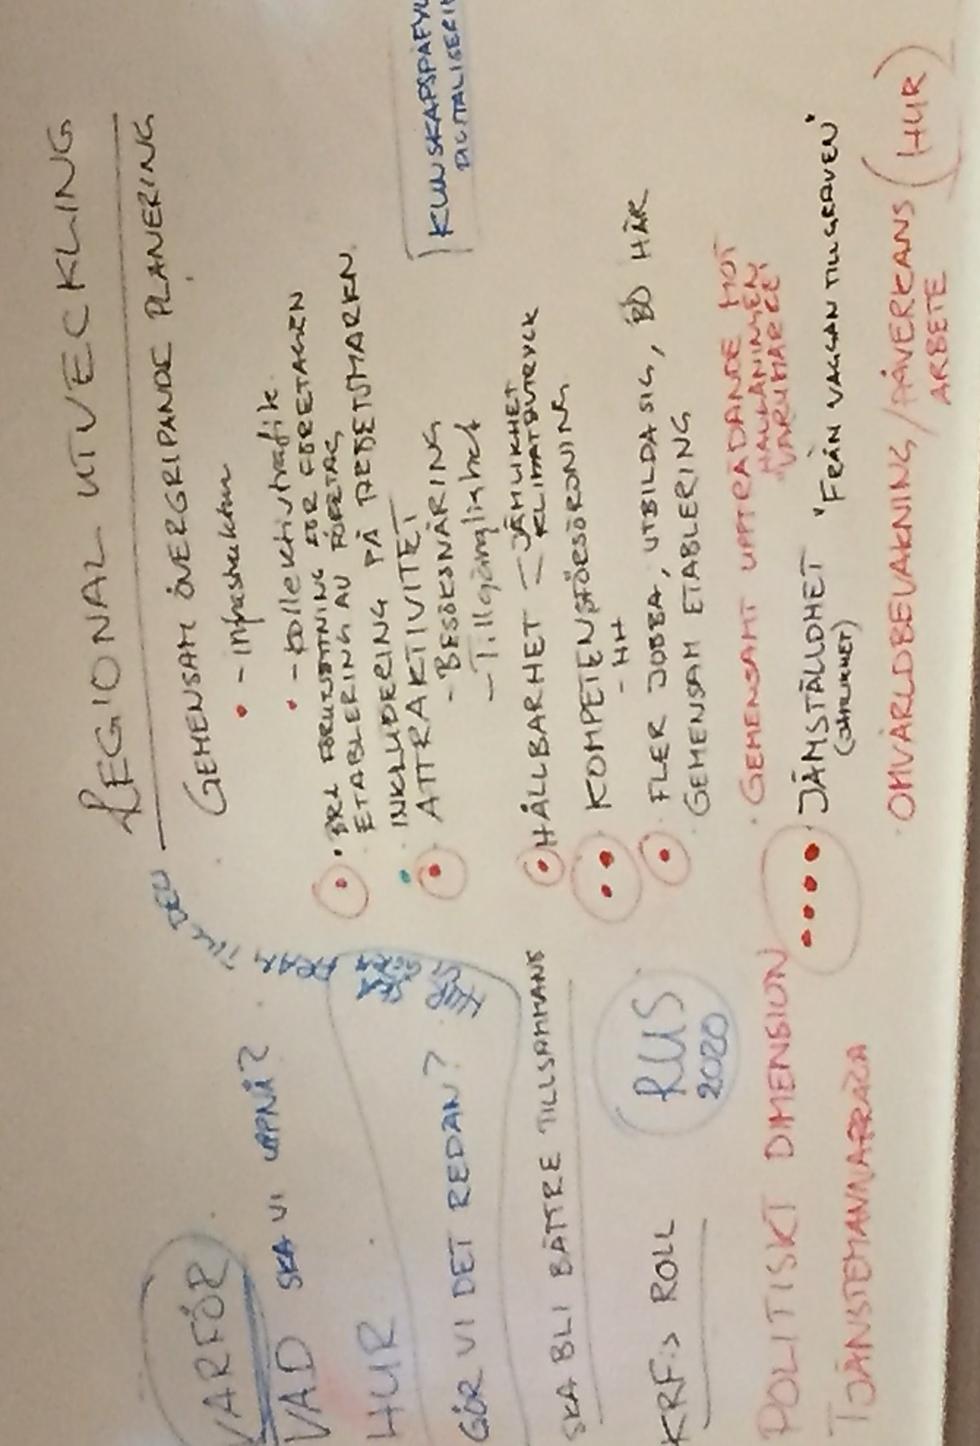 VARFÖR
VAD SKA VI UPPNÅ?
HUR
GÖR VI DET REDAN?
SKA BLI BÄTTRE TILLSAMMANS
KRF:s ROLL
RUS
2020
POLITISKT DIMENSION
TJÄNSTEMANNAFRÅGA
REGIONAL UTVECKLING
GEMENSAM ÖVERGRIPANDE PLANERING
- infrastruktur
- kollektivtrafik
BRA FÖRUTSÄTTNING FÖR FÖRETAGEN
ETABLERING AV FÖRETAG
INKLUDERING PÅ ARBETSMARKN.
ATTRAKTIVITET
- BESÖKSNÄRING
- Tillgänglighet
HÅLLBARHET - JÄMLIKHET
KLIMATAVTRYCK
KOMPETENSFÖRSÖRJNING
- HH
FLER JOBBA, UTBILDA SIG, BO HÄR
GEMENSAM ETABLERING
GEMENSAMT UPPTRÄDANDE MOT
VARUMÄRKE
JÄMSTÄLLDHET "FRÅN VAGGAN TILL GRAVEN"
(JÄMLIKHET)
OMVÄRLDBEVAKNING/PÅVERKANS (HUR
ARBETE
KUNSKAPSPÅFYL
DIGITALISERI